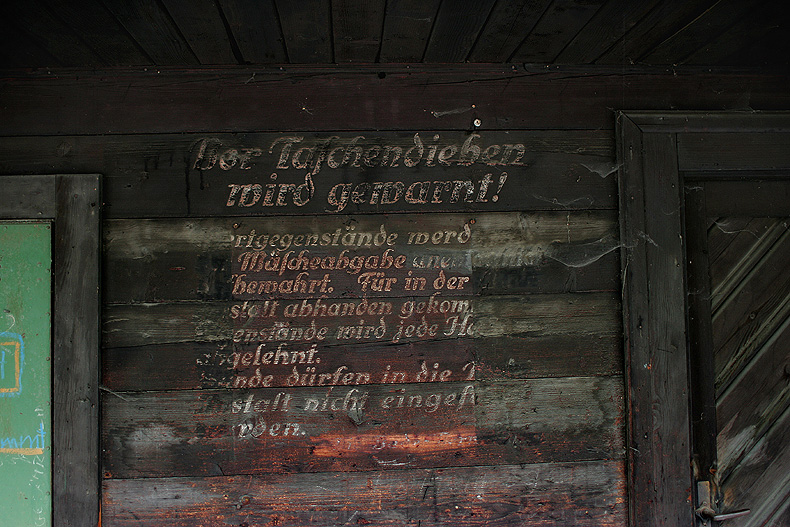 Vor Taschendieben
wird gewarnt!
rtgegenstände werd
Wäscheabgabe
bewahrt. Für in der
stalt abhanden gekom
enstände wird jede Ha
gelehnt.
nde dürfen in die
stalt nicht eingef
rden.